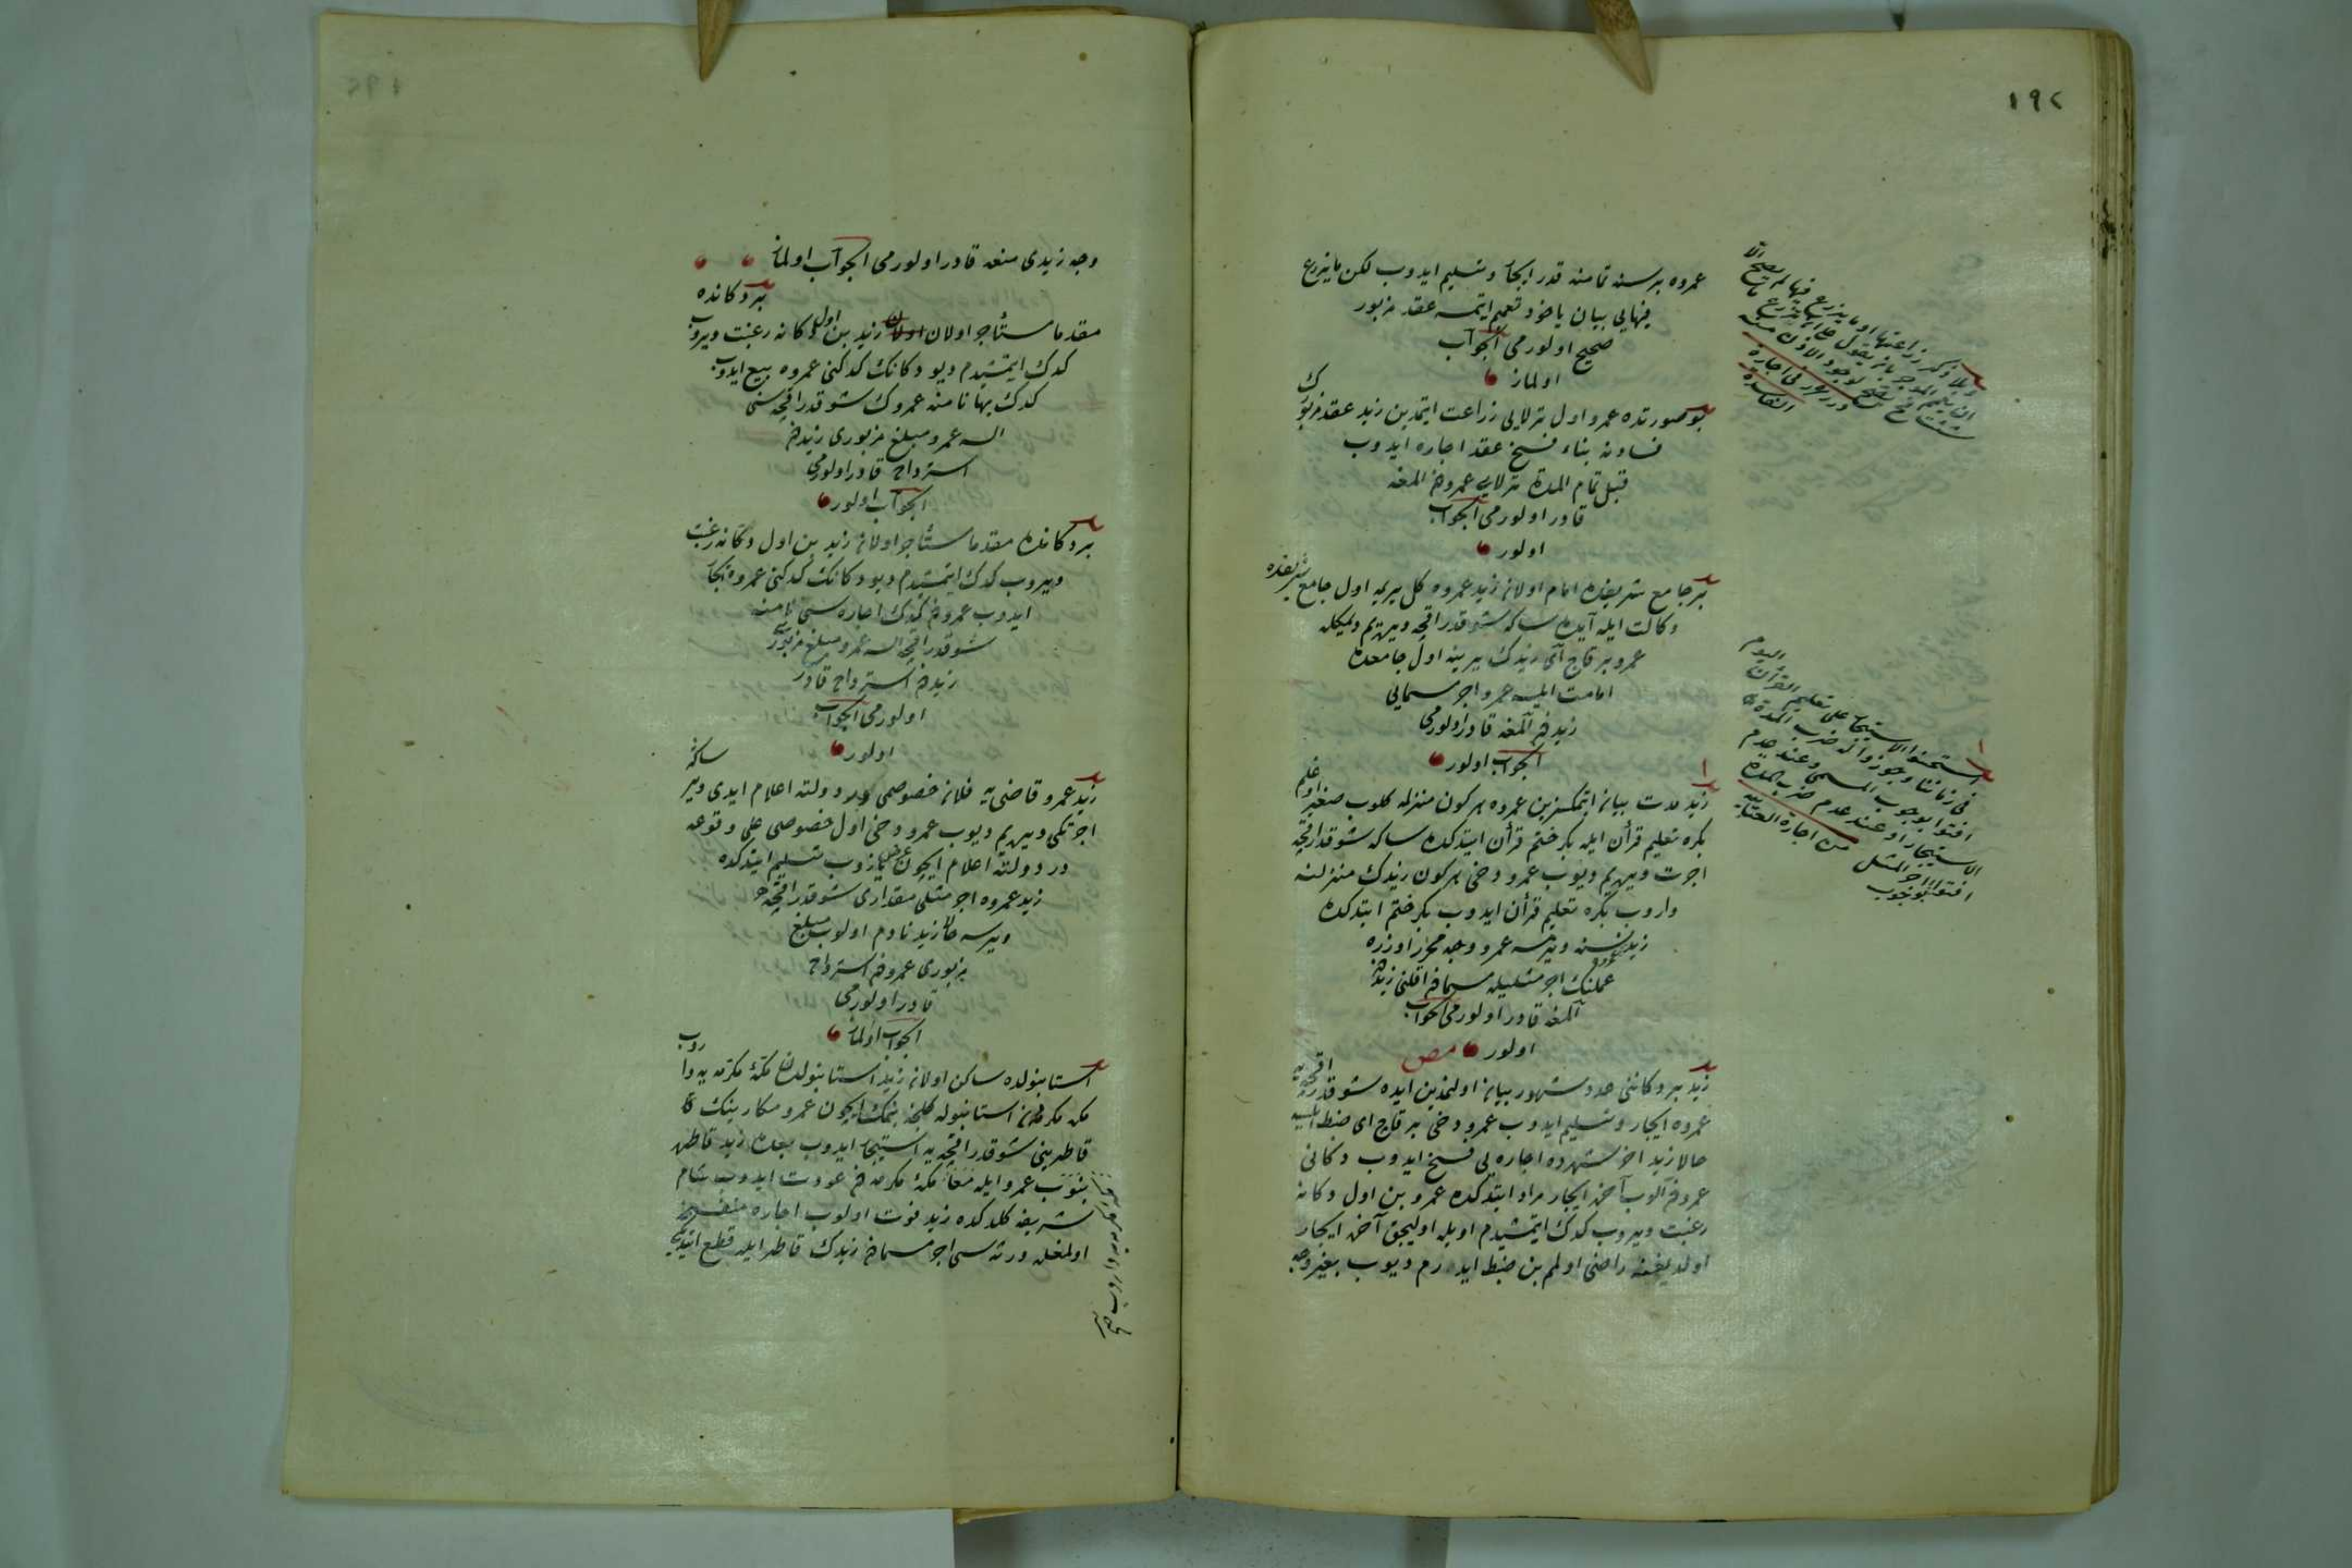 ١٩٢
عمروه برسنه تمامنه قدر ايجار وتسليم ايدوب لكن ما يزرع
فيهايى بيان ياخود تعميم ايتمسه عقد مزبور
صحيح اولورمى الجواب
اولماز
بو صورتده عمرو اول ترلايى زراعت ايتمدين زيد عقد مزبورك
فسادنه بناء فسخ عقد اجاره ايدوب
قبل تمام المدة ترلايى عمرودن المغه
قادر اولورمى الجواب
اولور
بر جامع شريفده امام اولان زيد عمروه كل بريمه اول جامع شريفده
وكالت ايله آيده سكا شو قدر اقچه ويريم ديمكله
عمرو بر قاج آى زيدك يرينه اول جامعده
امامت ايلسه عمرو اجر مسمايى
زيددن آلمغه قادر اولورمى
الجواب اولور
زيد مدت بيان ايتمكسزين عمروه هر كون منزلمه كلوب صغير اوغلم
بكره تعليم قرآن ايله بكر ختم قرآن ايتدكده سكا شو قدر اقچه
اجرت ويريم ديوب عمرو دخى هر كون زيدك منزلنه
واروب بكره تعليم قرآن ايدوب بكر ختم ايتدكده
زيد نسنه ويرمسه عمرو وجه محرر اوزره
عملنك اجر مثليله مسمادن اقلنى زيددن
آلمغه قادر اولورمى الجواب
اولور مص
زيد بر دكاننى عدد شهور بيان اولنمدين آيده شو قدر اقچه يه
عمروه ايجار وتسليم ايدوب عمرو دخى بر قاج آى ضبط ايلسه
حالا زيد آخر شهرده اجاره يى فسخ ايدوب دكانى
عمرودن آلوب آخره ايجار مراد ايتدكده عمرو بن اول دكانه
رغبت ويروب كدك ايتمشيدم اويله اوليجق آخره ايجار
اولنديغنه راضى اولمم بن ضبط ايدرم ديوب بغير وجه
وبلا ذكر زراعتها او ما يزرع فيها لم يصح الا
ان يعمم الموجر بان يقول على ان تزرع ما
شئت فح تصح لوجود الاذن منه
درر غرر فى اجارة
الفاسدة
استحسنوا الاستيجار على تعليم القرآن اليوم
فى زماننا وجوزوا له ضرب المدة
افتوا بوجوب المسمى وعند عدم
الاستيجار او عند عدم ضرب المدة
افتوا بوجوب اجر المثل من اجارة العناية
وجه زيدى منعه قادر اولورمى الجواب اولماز
بر دكانده
مقدما مستأجر اولان زيد بن اول دكانه رغبت ويروب
كدك ايتمشيدم ديو دكانك كدكنى عمروه بيع ايدوب
كدك بها نامنه عمروك شو قدر اقچه سنى
السه عمرو مبلغ مزبورى زيددن
استرداده قادر اولورمى
الجواب اولور
بر دكانده مقدما مستأجر اولان زيد بن اول دكانه رغبت
ويروب كدك ايتمشيدم ديو دكانك كدكنى عمروه ايجار
ايدوب عمرودن كدك اجاره سى نامنه
شو قدر اقچه السه عمرو مبلغ مزبورى
زيددن استرداده قادر
اولورمى الجواب
اولور
زيد عمرو قاضى يه فلان خصوصمى در دولته اعلام ايدى وير سكا
اجرتكى ويريم ديوب عمرو دخى اول خصوصى على وقوعه
در دولته اعلام ايچون عرض يازوب تسليم ايتدكده
زيد عمروه اجر مثلى مقدارى شو قدر اقچه
ويرسه حالا زيد نادم اولوب مبلغ
مزبورى عمرودن استرداده
قادر اولورمى
الجواب اولماز
استانبولده ساكن اولان زيد استانبولدن مكه مكرمه يه واروب
مكه مكرمه دن استانبوله كلنجه بنمك ايچون عمرو مكارينك
قاطرينى شو قدر اقچه يه استيجار ايدوب بعده زيد قاطره
بنوب عمرو ايله معا مكه مكرمه دن عودت ايدوب شام
شريفه كلدكده زيد فوت اولوب اجاره منفسخه
اولمغله ورثه سى اجر مسمادن زيدك قاطر ايله قطع ايتديكى